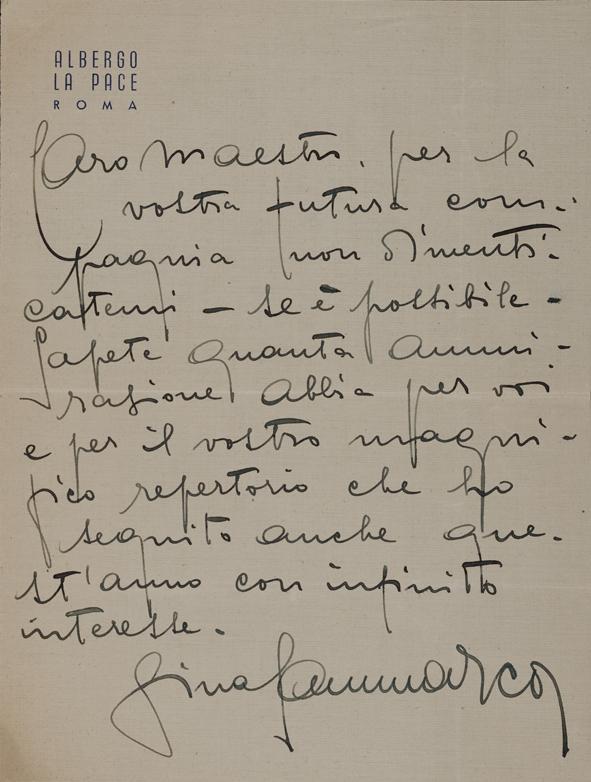 ALBERGO
LA PACE
ROMA
Caro Maestro, per la
vostra futura com-
pagnia non dimenti-
catemi - se è possibile -
Sapete quanta ammi-
razione abbia per voi
e per il vostro magni-
fico repertorio che ho
seguito anche que-
st'anno con infinito
interesse.
Gina Sammarco